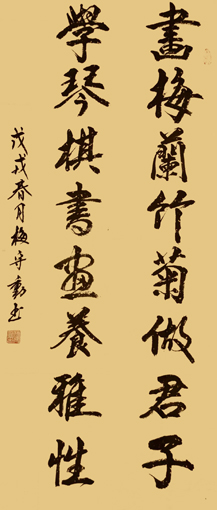 畫梅蘭竹菊做君子
學琴棋書畫養雅性
戊戌春月梅守勤书